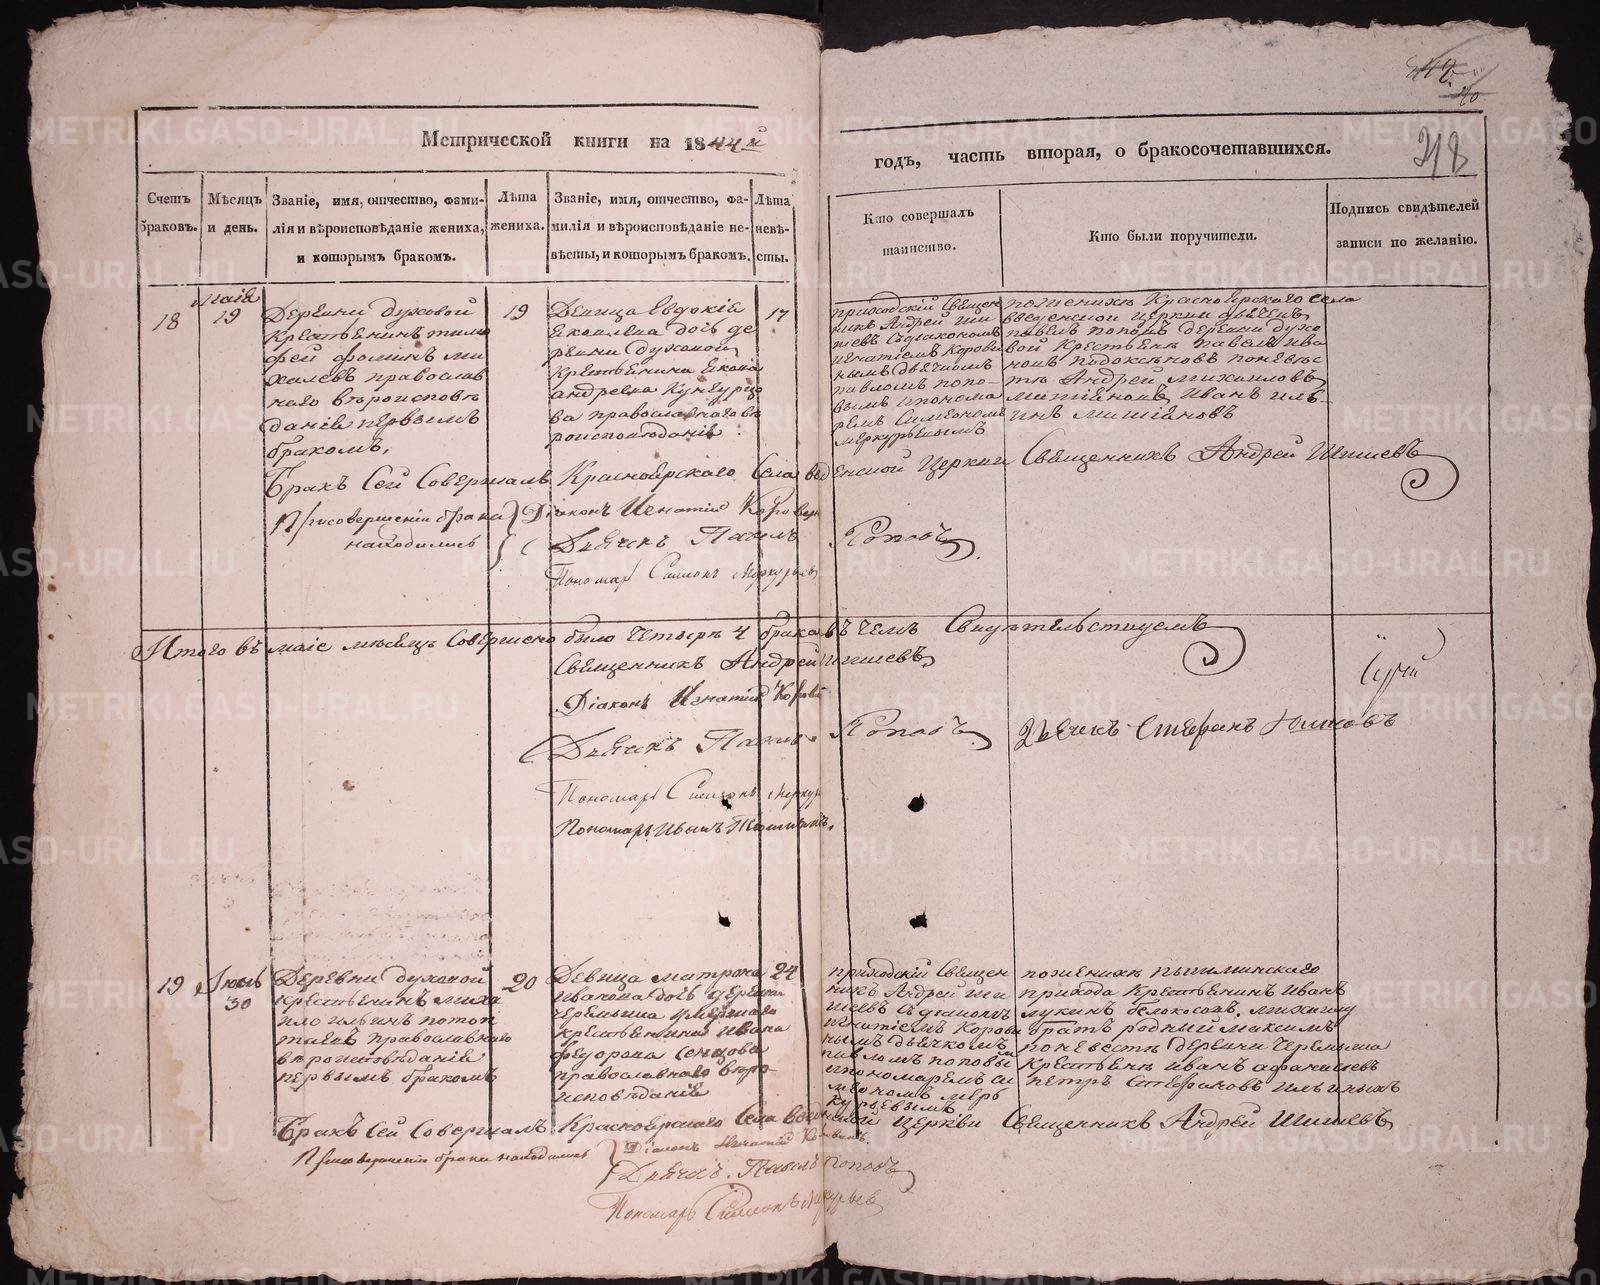 Метрической книги на 1844й
годъ, часть вторая, о бракосочетавшихся.
318
Счетъ браковъ.
Мѣсяцъ и день.
Званіе, имя, отчество, фами-
лія и вѣроисповѣданіе жениха,
и которымъ бракомъ.
Лѣта
жениха.
Званіе, имя, отчество, фа-
милія и вѣроисповѣданіе не-
вѣсты, и которымъ бракомъ.
Лѣта
невѣ-
сты.
Кто совершалъ
таинство.
Кто были поручители.
Подпись свидѣтелей
записи по желанію.
18
Маія
19
Деревни Духовой
крестьянинъ Тимо
фей Фоминъ Ми
халевъ православ
наго вѣроисповѣ
данія первымъ
бракомъ.
19
Девица Евдокія
дочь де
ревни Духовой
крестьянина
Андреева Кунгурцо
ва православнаго вѣ
роисповѣданія
17
приходскій Священ
никъ Андрей Ши
шевъ съ діакономъ
Игнатіемъ Корови
нымъ дьячкомъ
Павломъ Попо-
вымъ и понома
ремъ Симеономъ
Меркурьевымъ
по женихѣ Красноярскаго села
введенской церкви дьячекъ
Павелъ Поповъ деревни Духо
вой крестьянъ Павелъ Ива
новъ по невѣс
тѣ Андрей Михайловъ
Иванъ Иль-
инъ
Бракъ сей совершалъ Красноярскаго Села введенской Церкви Священникъ Андрей Шишевъ
При совершеніи брака находились
Діаконъ Игнатій Коровинъ
Дьячекъ Павелъ Поповъ
Пономарь Симеонъ Меркурьевъ
Итого въ маіе месяцѣ совершено было четыре 4 брака въ чемъ Свидѣтельствуемъ
Священникъ Андрей Шишевъ
Діаконъ Игнатій Коровинъ
Дьячекъ Павелъ Поповъ
Дьячекъ Стефанъ
Пономарь Симеонъ Меркур
Пономарь
19
Іюль
30
Деревни Духовой
крестьянинъ Миха
ило Ильинъ Потоп
таевъ православнаго
вѣроисповѣданія
первымъ бракомъ
20
Девица Матрона
Иванова дочь деревни
Черемыша умершаго
крестьянина Ивана
Федорова Сенцова
православнаго вѣро-
исповѣданія
24
приходскій Священ
никъ Андрей Ши
шевъ съ діакономъ
Игнатіемъ Корови
нымъ дьячкомъ
Павломъ Поповы
и пономаремъ Си
меономъ Мерь
курьевымъ
по женихѣ Пышминскаго
прихода крестьянинъ Иванъ
Лукинъ Белокосовъ, жениху
братъ родный Максимъ
по невестѣ деревни Черемыша
крестьяне Иванъ Афанасьевъ
Петръ Стефановъ Ильиныхъ
Бракъ сей совершалъ Красноярскаго Села введенской Церкви Священникъ Андрей Шишевъ
При совершеніи брака находились
Діаконъ Игнатій Коровинъ
Дьячекъ Павелъ Поповъ
Пономарь Симеонъ Меркурьев
METRIKI.GASO-URAL.RU